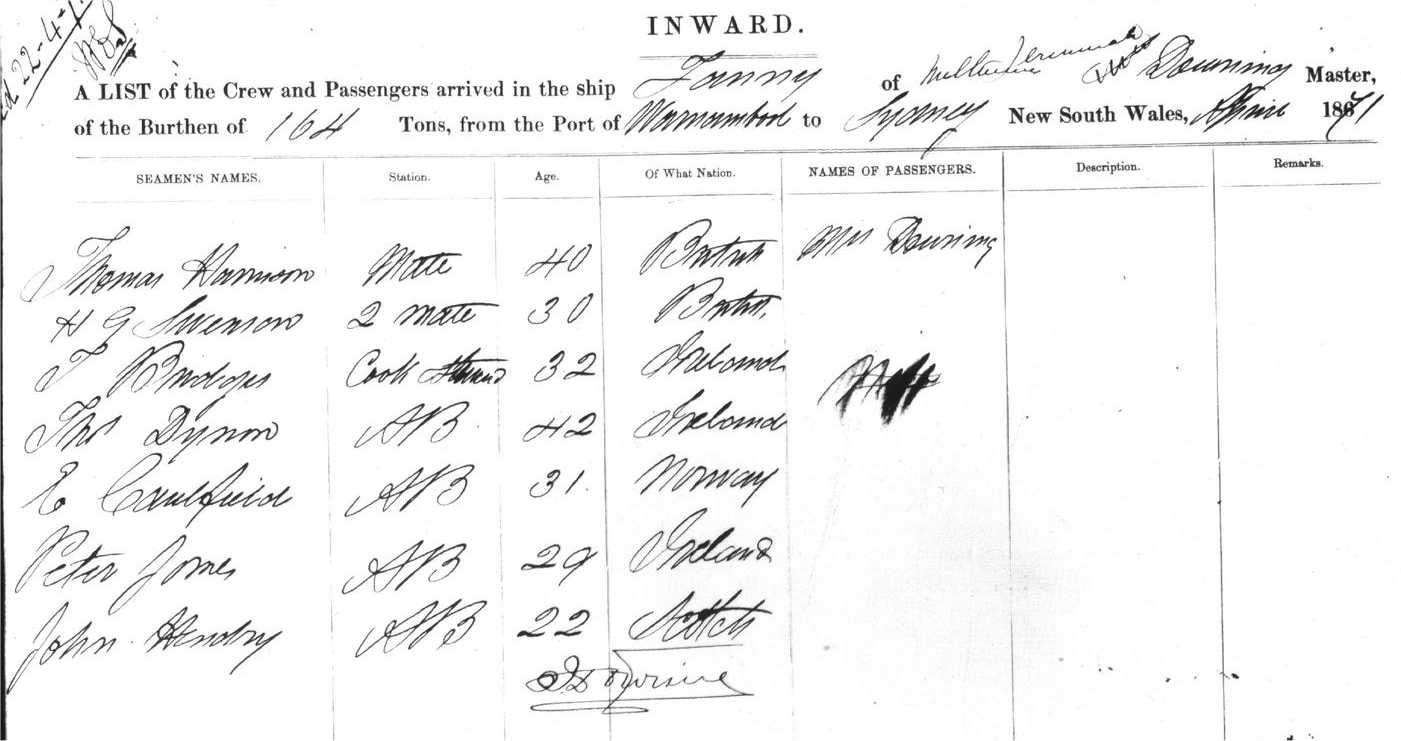 22-4-
INWARD.
A LIST of the Crew and Passengers arrived in the ship Fanny of Jeremiah Downing Master,
of the Burthen of 164 Tons, from the Port of Warnambool to Sydney New South Wales, 1871
SEAMEN'S NAMES. Station. Age. Of What Nation. NAMES OF PASSENGERS. Description. Remarks.
Thomas Harrison Mate 40 British Mrs Downing
H G Swenson 2 Mate 30 British
T Bridges Cook 32 Ireland
Thos Dynon AB 42 Ireland
E Caulfield AB 31 Norway
Peter Jones AB 29 Ireland
John Hendry AB 22 Scotch